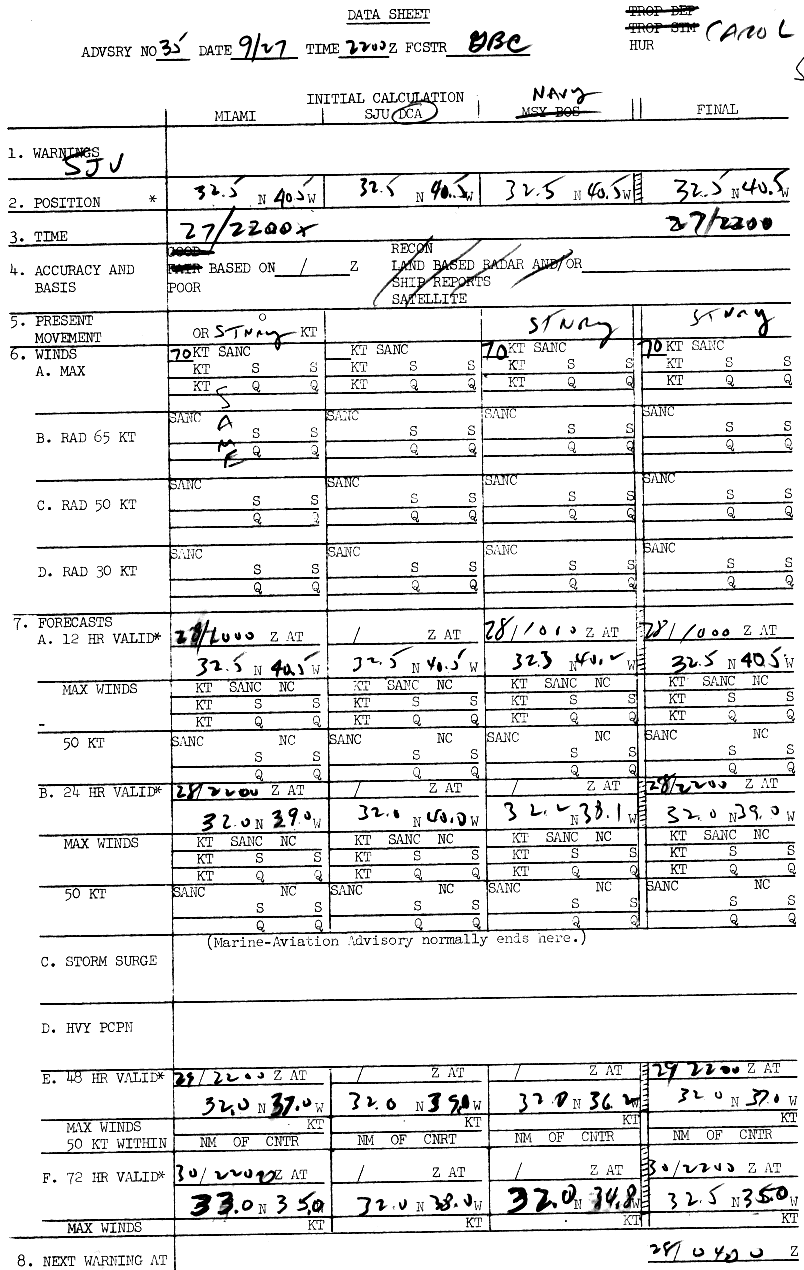 DATA SHEET
TROP DEP
TROP STM CAROL
ADVSRY NO 35 DATE 9/27 TIME 2200 Z FCSTR GBC HUR
INITIAL CALCULATION NAVY
MIAMI SJU DCA MSY BOS FINAL
1. WARNINGS
SJU
2. POSITION * 32.5 N 40.5 W 32.5 N 40.5 W 32.5 N 40.5 W 32.5 N 40.5 W
3. TIME 27/2200 27/2200
GOOD RECON
4. ACCURACY AND FAIR BASED ON / Z LAND BASED RADAR AND/OR
BASIS POOR SHIP REPORTS
SATELLITE
5. PRESENT O STNRY STNRY
MOVEMENT OR STNRY KT
6. WINDS 70 KT SANC KT SANC 70 KT SANC 70 KT SANC
A. MAX KT S S KT S S KT S S KT S S
KT Q Q KT Q Q KT Q Q KT Q Q
SAME
SANC SANC SANC SANC
B. RAD 65 KT S S S S S S S S
Q Q Q Q Q Q Q Q
SANC SANC SANC SANC
C. RAD 50 KT S S S S S S S S
Q Q Q Q Q Q Q Q
SANC SANC SANC SANC
D. RAD 30 KT S S S S S S S S
Q Q Q Q Q Q Q Q
7. FORECASTS
A. 12 HR VALID* 28/1000 Z AT / Z AT 28/1000 Z AT 28/1000 Z AT
32.5 N 40.5 W 32.5 N 40.5 W N W 32.5 N 40.5 W
MAX WINDS KT SANC NC KT SANC NC KT SANC NC KT SANC NC
KT S S KT S S KT S S KT S S
- KT Q Q KT Q Q KT Q Q KT Q Q
50 KT SANC NC SANC NC SANC NC SANC NC
S S S S S S S S
Q Q Q Q Q Q Q Q
B. 24 HR VALID* 28/2200 Z AT / Z AT / Z AT 28/2200 Z AT
32.0 N 39.0 W 32.0 N 40.0 W N 38.1 W 32.0 N 39.0 W
MAX WINDS KT SANC NC KT SANC NC KT SANC NC KT SANC NC
KT S S KT S S KT S S KT S S
KT Q Q KT Q Q KT Q Q KT Q Q
50 KT SANC NC SANC NC SANC NC SANC NC
S S S S S S S S
Q Q Q Q Q Q Q Q
(Marine-Aviation Advisory normally ends here.)
C. STORM SURGE
D. HVY PCPN
E. 48 HR VALID* 29/2200 Z AT / Z AT / Z AT 29 2200 Z AT
32.0 N 37.0 W 32.0 N 39.0 W 32.0 N 36.2 W 32 0 N 37.0 W
MAX WINDS KT KT KT KT
50 KT WITHIN NM OF CNTR NM OF CNRT NM OF CNTR NM OF CNTR
F. 72 HR VALID* 30/2200 Z AT / Z AT / Z AT 30/2200 Z AT
33.0 N 35.0 32.0 N 38.0 W 32.0 N 34.8 W 32.5 N 35.0 W
MAX WINDS KT KT KT KT
8. NEXT WARNING AT 28/0400 Z